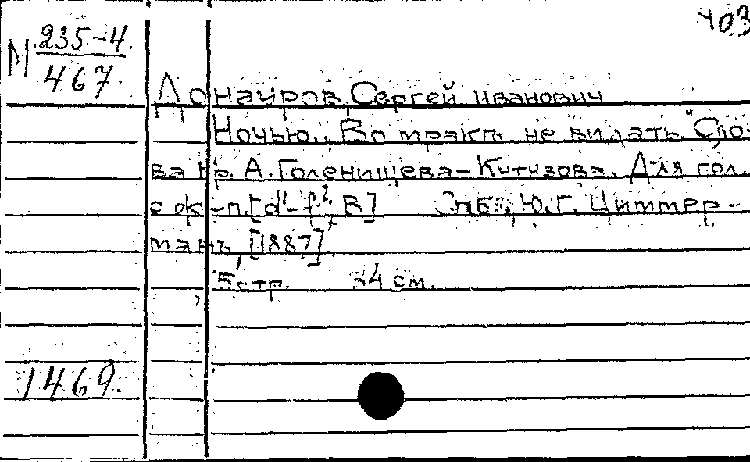 403
М 235-4
467.
Донауров, Сергей Иванович
Ночью.. Во мраке не видать." Сло-
ва гр. А. Голенищева-Кутузова. Для гол.
с ф-п. [d¹-f², В] Спб., Ю. Г. Циммер-
манъ, [1887]
5 стр. 34 см.
1469.